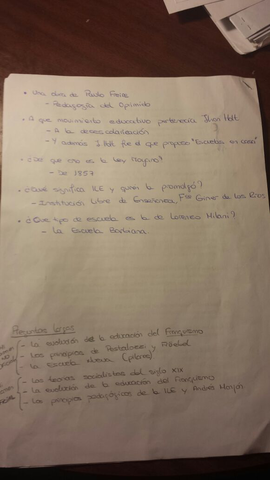 • Una obra de Paulo Freire
- Pedagogía del Oprimido
• A que movimiento educativo pertenecía Jhon Holt.
- A la desescolarización
- Y además J. Holt fue el que propuso "Escuela en casa"
• ¿De que año es la Ley Moyano?
- De 1857
• ¿Qué significa ILE y quien la promovió?
- Institución Libre de Enseñanza, Fco Giner de los Ríos
• ¿Que tipo de escuela es la de Lorenzo Milani?
- La Escuela Barbiana
Preguntas largas
- La evolución de la educación del Franquismo
- Los principios de Pestalozzi y Fröebel
- La Escuela Nueva (pilares)
- Las teorías socialistas del siglo XIX
- La evolución de la educación del Franquismo
- Los principios pedagógicos de la ILE y Andrés Manjón